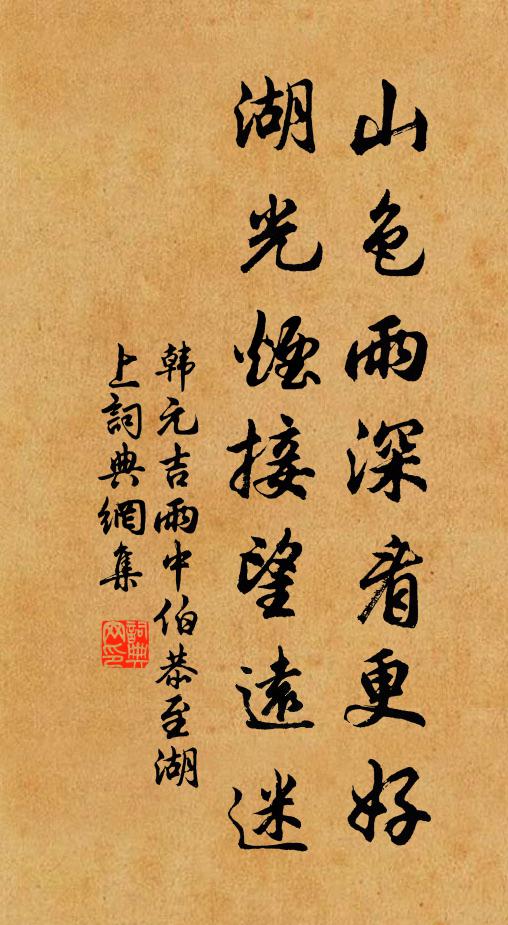 山色雨深看更好
湖光煙接望遠迷
韩元吉雨中伯恭至湖
上詞典網集
詞典網印